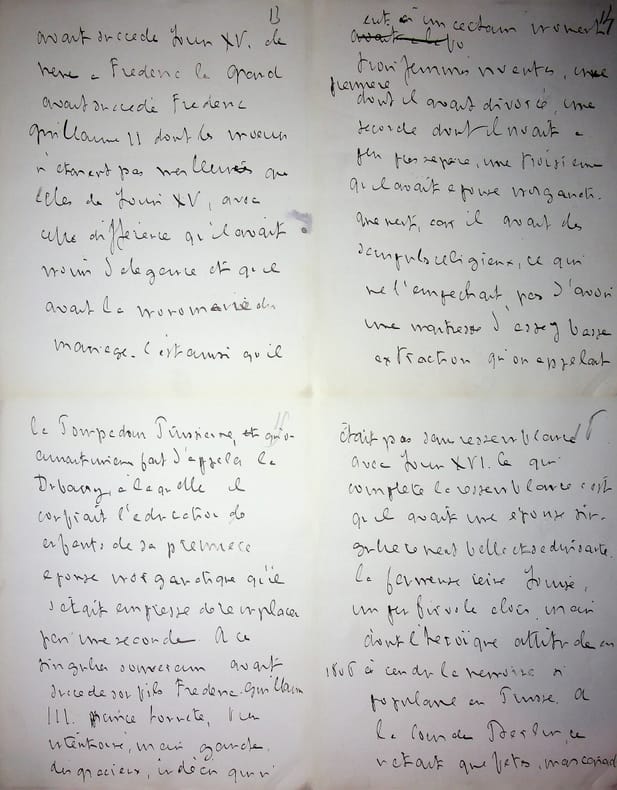 13
avait succédé Louis XV. de
même a Frederic le grand
avait succédé Frederic
guillaume II dont les moeurs
n etaient pas meilleures que
celles de Louis XV, avec
cette différence qu'il avait
moins d'elegance et que
avait la monomanie du
mariage. C'est ainsi qu'il
14
eut à un certain moment
trois femmes vivantes, une
premiere
dont il avait divorcé, une
seconde dont il vivait a
peu pres separe, une troisieme
qu'il avait epouse morganati-
quement, car il avait des
scrupules religieux, ce qui
ne l'empechait pas d'avoir
une maitresse d'assez basse
extraction qu'on appelait
15
la Pompadour Prussienne, et qu'on
aurait mieux fait d'appeler la
Dubarry, à laquelle il
confiait l'education des
enfants de sa premiere
epouse morganatique qu'il
s'était empresse de remplacer
par une seconde. A ce
singulier souverain avait
succede son fils Frederic-Guillaume
III. prince honnete, bien
intentionné, mais gauche,
disgracieux, indécis qui n'
16
était pas sans ressemblance
avec Louis XVI. Ce qui
complete la ressemblance c'est
qu'il avait une epouse sin-
gulierement belle et seduisante.
la fameuse reine Louise,
un peu frivole alors, mais
dont l'heroïque attitude en
1806 à rendu la memoire si
populaire en Prusse. A
la Cour de Berlin, ce
n'etait que fetes, mascarad